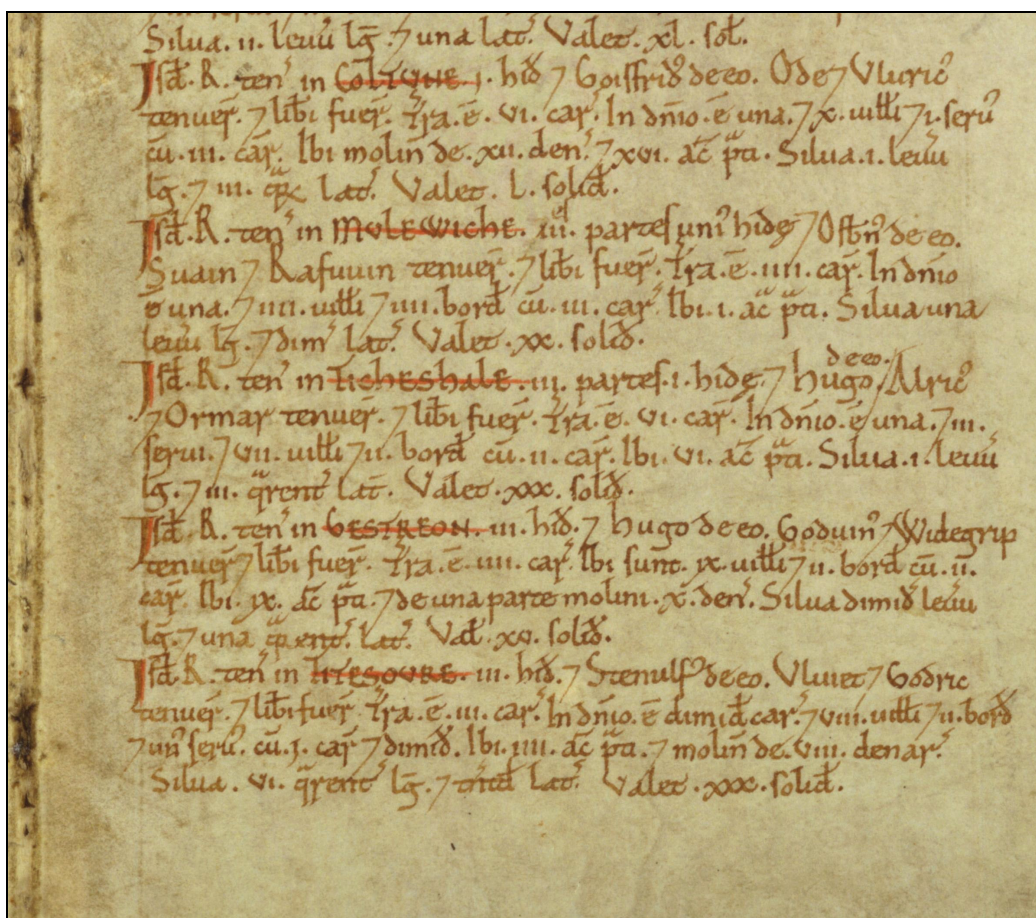 Silua. ii. leuu lḡ. ⁊ una lat̄. Valet. xl. sol̄.
Isd̄. R. ten̄ in COLTVNE. i. hid̄ ⁊ Goisfrid̄ de eo. Ode ⁊ Vluric̄
tenuer̄. ⁊ lib̄i fuer̄. T̄ra. ē. vi. car̄. In dn̄io. ē una. ⁊ x. uilli ⁊ i. seru᷒
cū. iii. car̄. Ibi molin̄ de. xii. den̄. ⁊ xvi. ac̄ p̄ti. Silua. i. leuu
lḡ. ⁊ iii. qr̄ lat̄. Valet. l. solid̄.
Isd̄. R. ten̄ in MVLEWICHE. iii.es partes uni᷒ hidę ⁊ Osb̄n᷒ de eo.
Suain ⁊ Rafuuin tenuer̄. ⁊ lib̄i fuer̄. T̄ra. ē. iiii. car̄. In dn̄io
ē una. ⁊ iiii. uilli ⁊ iiii. bord̄ cū. iii. car̄. Ibi. i. ac̄ p̄ti. Silua una
leuu lḡ. ⁊ dim̄ lat̄. Valet. xx. solid̄.
Isd̄. R. ten̄ in TICHESHALE. iii. partes. i. hidę. ⁊ hugo de eo. Alric̄
⁊ Ormar tenuer̄. ⁊ lib̄i fuer̄. T̄ra. ē. vi. car̄. In dn̄io. ē una. ⁊ iii.
serui. ⁊ vii. uilli ⁊ ii. bord̄ cū. ii. car̄. Ibi. vi. ac̄ p̄ti. Silua. i. leuu
lḡ. ⁊ iii. qrent̄ lat̄. Valet. xxx. solid̄.
Isd̄. R. ten̄ in GESTREON. iii. hid̄. ⁊ hugo de eo. Goduin᷒ ⁊ Widegrip
tenuer̄ ⁊ lib̄i fuer̄. T̄ra. ē. iiii. car̄. Ibi sunt. ix. uilli ⁊ ii. bord̄ cū. ii.
car̄. Ibi. ix. ac̄ p̄ti. ⁊ de una parte molini. x. den̄. Silua dimid̄ leuu
lḡ. ⁊ una qrent̄. lat̄. Val̄. xv. solid̄.
Isd̄. R. ten̄ in TITESOVRE. iii. hid̄. ⁊ Stenulf᷒ de eo. Vluiet ⁊ Godric
tenuer̄. ⁊ lib̄i fuer̄. T̄ra. ē. iii. car̄. In dn̄io. ē dimid̄ car̄. ⁊ viii. uilli ⁊ ii. bord̄
⁊ un᷒ seru᷒. cū. i. car̄ ⁊ dimid̄. Ibi. iiii. ac̄ p̄ti. ⁊ molin̄ de. viii. denar̄.
Silua. vi. qrent̄ lḡ. ⁊ tn̄td̄ lat̄. Valet. xxx. solid̄.